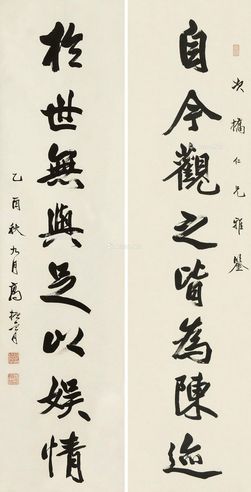 次橋仁兄雅鑒
自今觀之皆為陳迹
於世無與足以娛情
乙酉秋九月高振霄